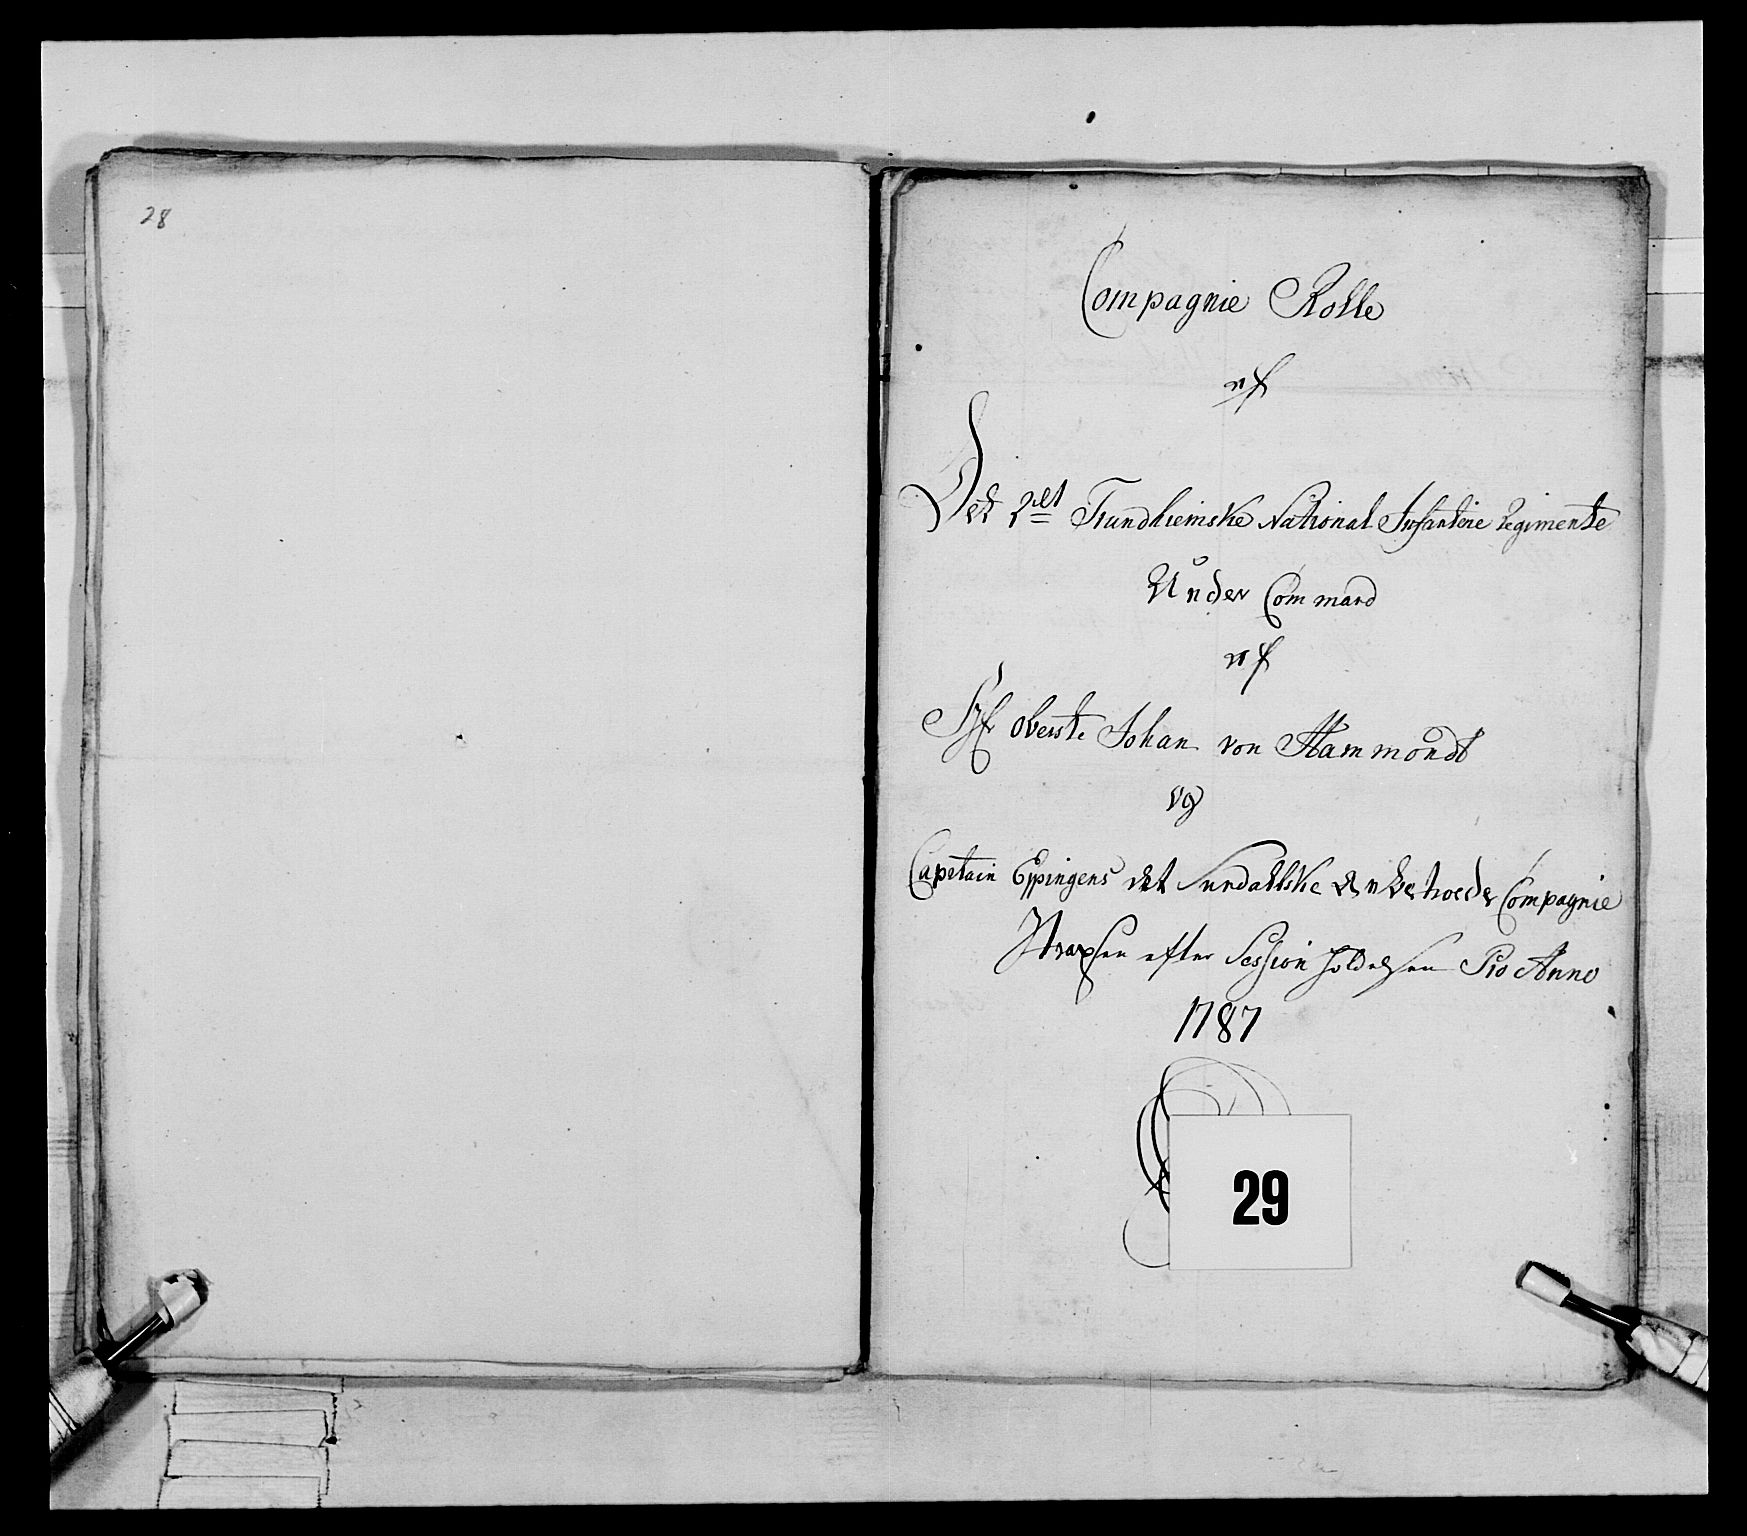 28
Compagnie Rolle
af
Det 2det Trundhiemske National Infanterie Regimente
Under Command
af
Hr Oberste Johan von Hammondt
og
Capetain Eppingens det Surdahlske Compagnie
Straxsen efter Session holdelsen Pro Anno
1787
29